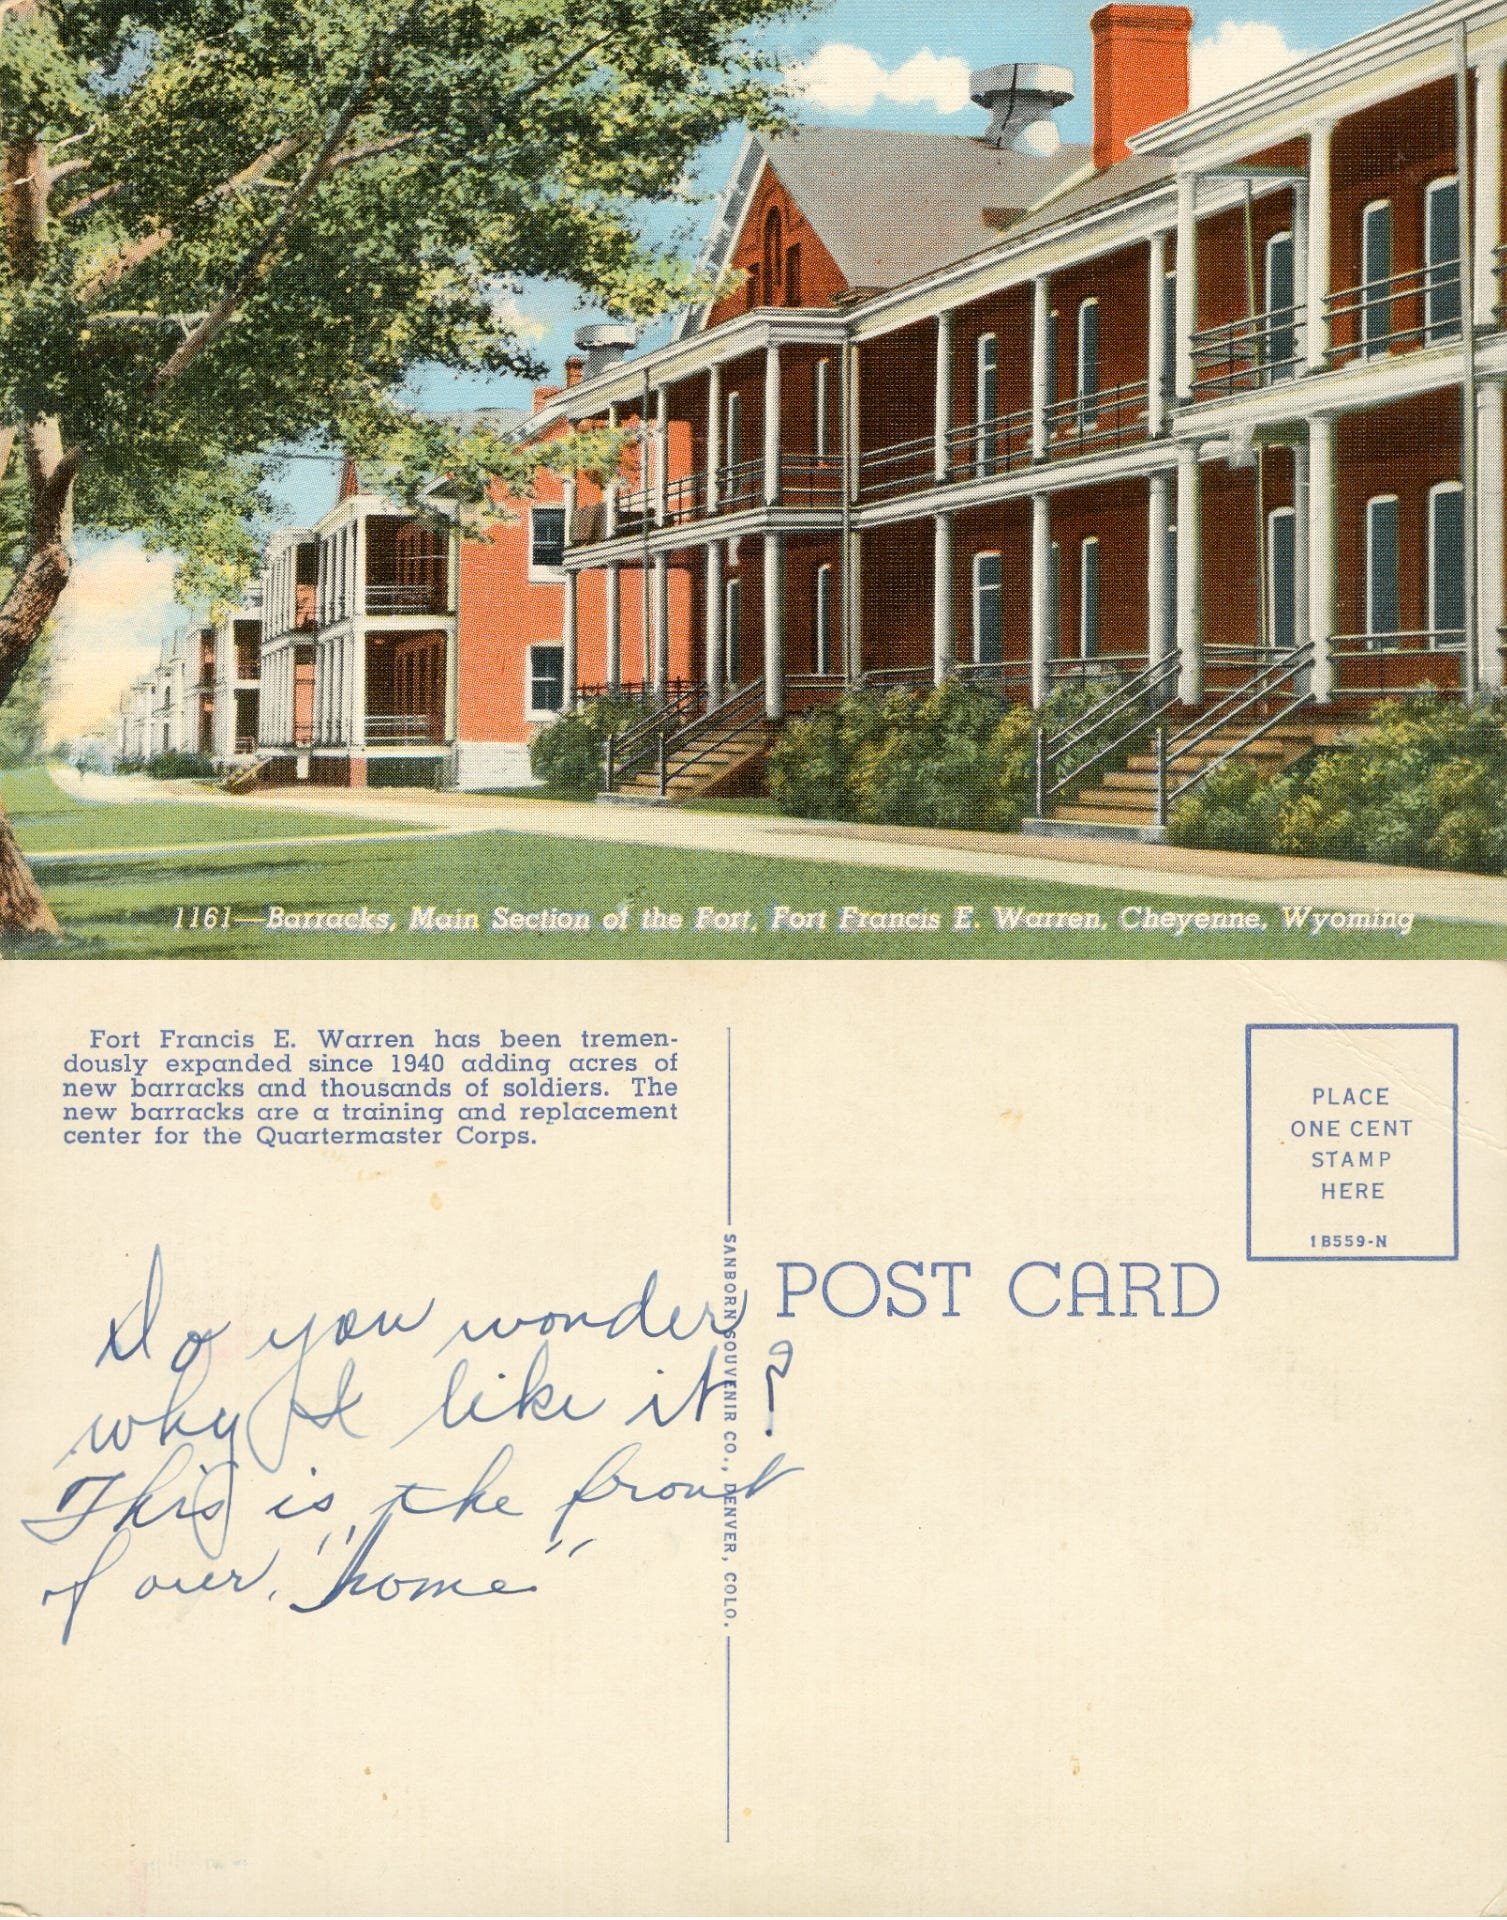 1161—Barracks, Main Section of the Fort, Fort Francis E. Warren, Cheyenne, Wyoming
Fort Francis E. Warren has been tremen-
dously expanded since 1940 adding acres of
new barracks and thousands of soldiers. The
new barracks are a training and replacement
center for the Quartermaster Corps.
Do you wonder
why I like it?
This is the front
of our "home"
SANBORN SOUVENIR CO., DENVER, COLO.
POST CARD
PLACE
ONE CENT
STAMP
HERE
1B559-N